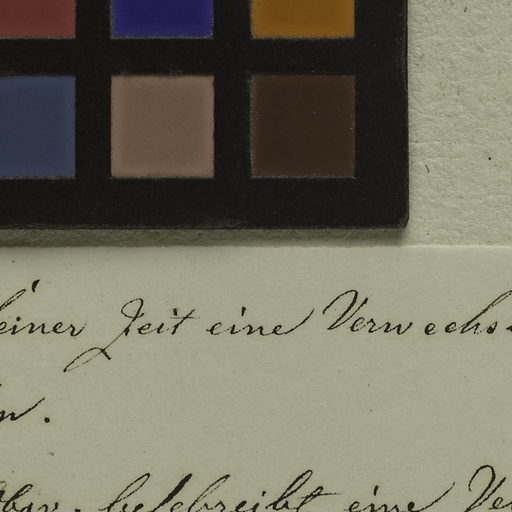 einer Zeit eine Verwechs
n.
beschreibt eine Ve